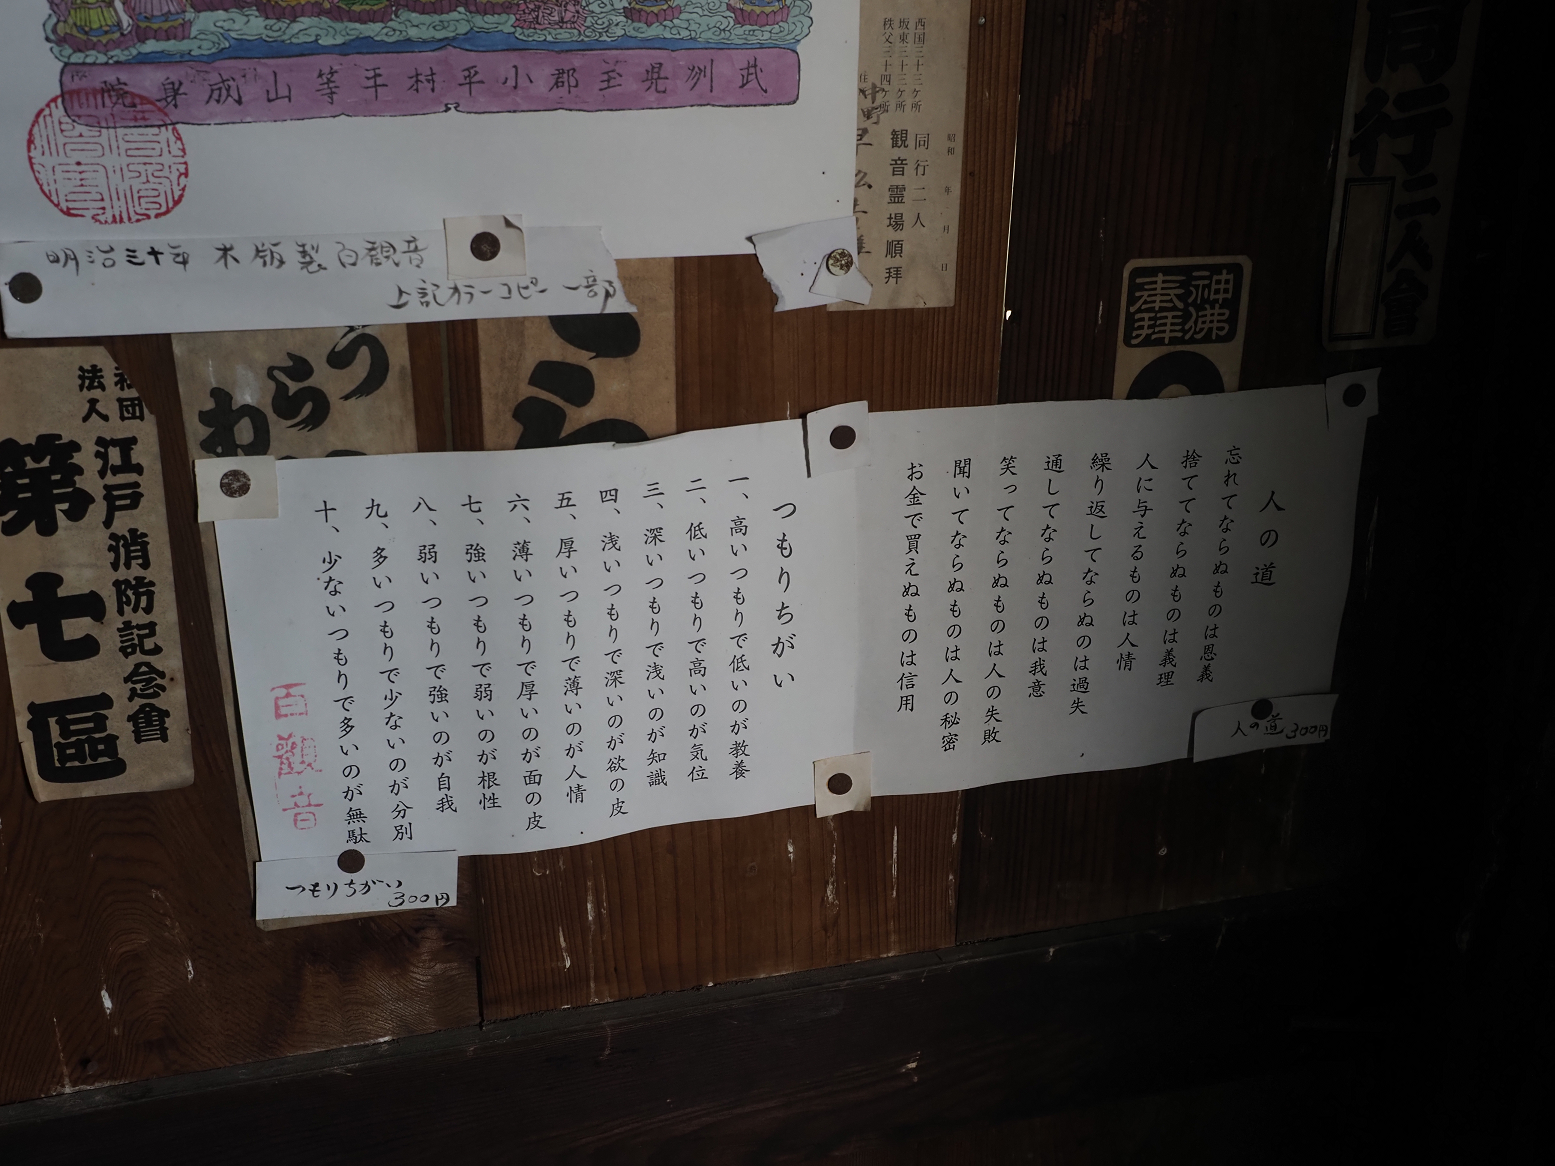 武州児玉郡小平村平等山成身院
明治三十年 木版製百観音
上記カラーコピー 一部
西国三十三ヶ所
坂東三十三ヶ所
秩父三十四ヶ所
昭和 年 月 日
同行二人
観音霊場順拝
住
同行二人會
神佛
奉拝
社団
法人
江戸消防記念會
第七區
うらわ
人の道
忘れてならぬものは恩義
捨ててならぬものは義理
人に与えるものは人情
繰り返してならぬのは過失
通してならぬものは我意
笑ってならぬものは人の失敗
聞いてならぬものは人の秘密
お金で買えぬものは信用
人の道 300円
つもりちがい
一、高いつもりで低いのが教養
二、低いつもりで高いのが気位
三、深いつもりで浅いのが知識
四、浅いつもりで深いのが欲の皮
五、厚いつもりで薄いのが人情
六、薄いつもりで厚いのが面の皮
七、強いつもりで弱いのが根性
八、弱いつもりで強いのが自我
九、多いつもりで少ないのが分別
十、少ないつもりで多いのが無駄
百觀音
つもりちがい 300円